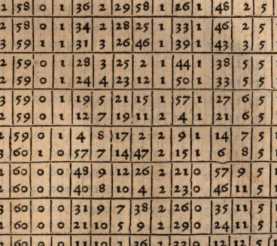 58 1 36 2 29 58 1 26 1 48 2 5
58 1 34 2 28 25 1 33 46 2 5
59 1 31 3 26 46 1 39 1 43 3 5
2 59 0 1 28 3 25 2 1 44 1 38 5 5
2 59 0 1 24 4 23 12 1 50 33 5 5
3 59 0 1 19 5 21 15 1 57 1 27 6 5
3 59 0 1 12 7 19 11 2 4 1 21 6 5
59 0 1 4 8 17 2 2 9 1 14 7 5
60 1 0 57 7 14 47 2 15 1 6 8 5
60 0 0 48 9 12 26 2 21 0 57 9 5
60 0 0 40 8 10 4 2 23 0 46 11 5
60 0 0 31 9 7 38 2 26 0 35 11 5
60 0 0 21 10 5 9 2 29 0 24 11 5
60 0 0 11 10 2 36 2 12 12 5